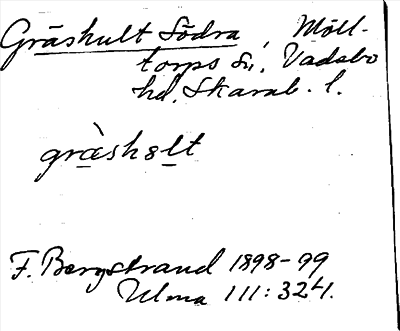 Gräshult Södra, Möll-
torps sn, Vadsbo
hd. Skarab. l.
gràshɵlt
F. Bergstrand 1898-99
Ulma 111:324.